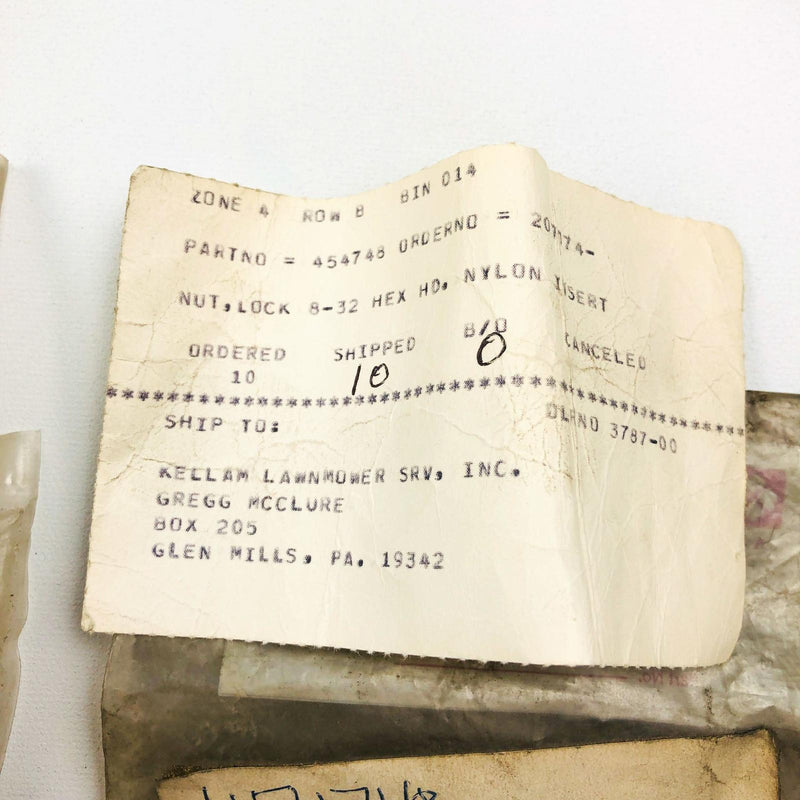 ZONE 4 ROW B BIN 014
PARTNO = 454748 ORDERNO =
NUT,LOCK 8-32 HEX HD, NYLON INSERT
ORDERED SHIPPED B/O CANCELED
10 10 0
****************************************************
SHIP TO: DLRNO 3787-00
KELLAM LAWNMOWER SRV, INC.
GREGG MCCLURE
BOX 205
GLEN MILLS, PA. 19342